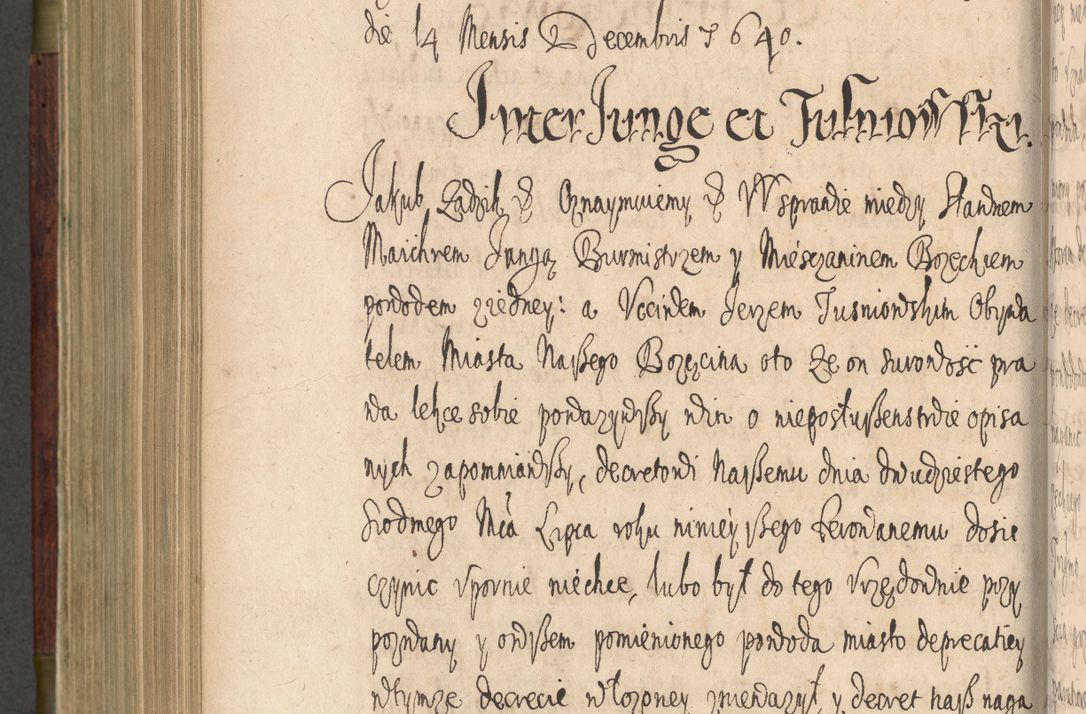 die 14 Mensis Decembris 1640.
Inter Junge et Tusniowski.
Jakub Zadzik & Oznaymuiemy & W sprawie miedzy Sławnem
Maichrem Jungą Burmistrzem y Miesczaninem Bozęckiem
powodem ziedney: a Vccivem Jerzem Tusniowskim Obywa
telem Miasta Naszego Bozęcina oto ze on surowość pra
wa lekce sobie powazywszy win o nieposłuszenstwie opisa
nych zapomniawszy, decretowi Naszemu dnia dwudziestego
siodmego Mca Lipca roku ninieyszego ferowanemu dosic
czynic vpornie niechce, lubo był do tego Vrzędownie przy
pozwany y owszem pomienionego powoda miasto deprecatiey
wtymze decrecie włozoney zniewazył y decret nasz naga